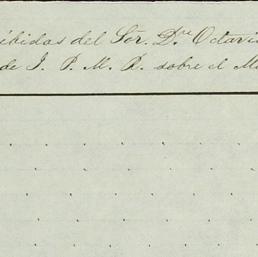 ébidas del Sõr. Dn. Octavi
de J. P. M. P. sobre el M